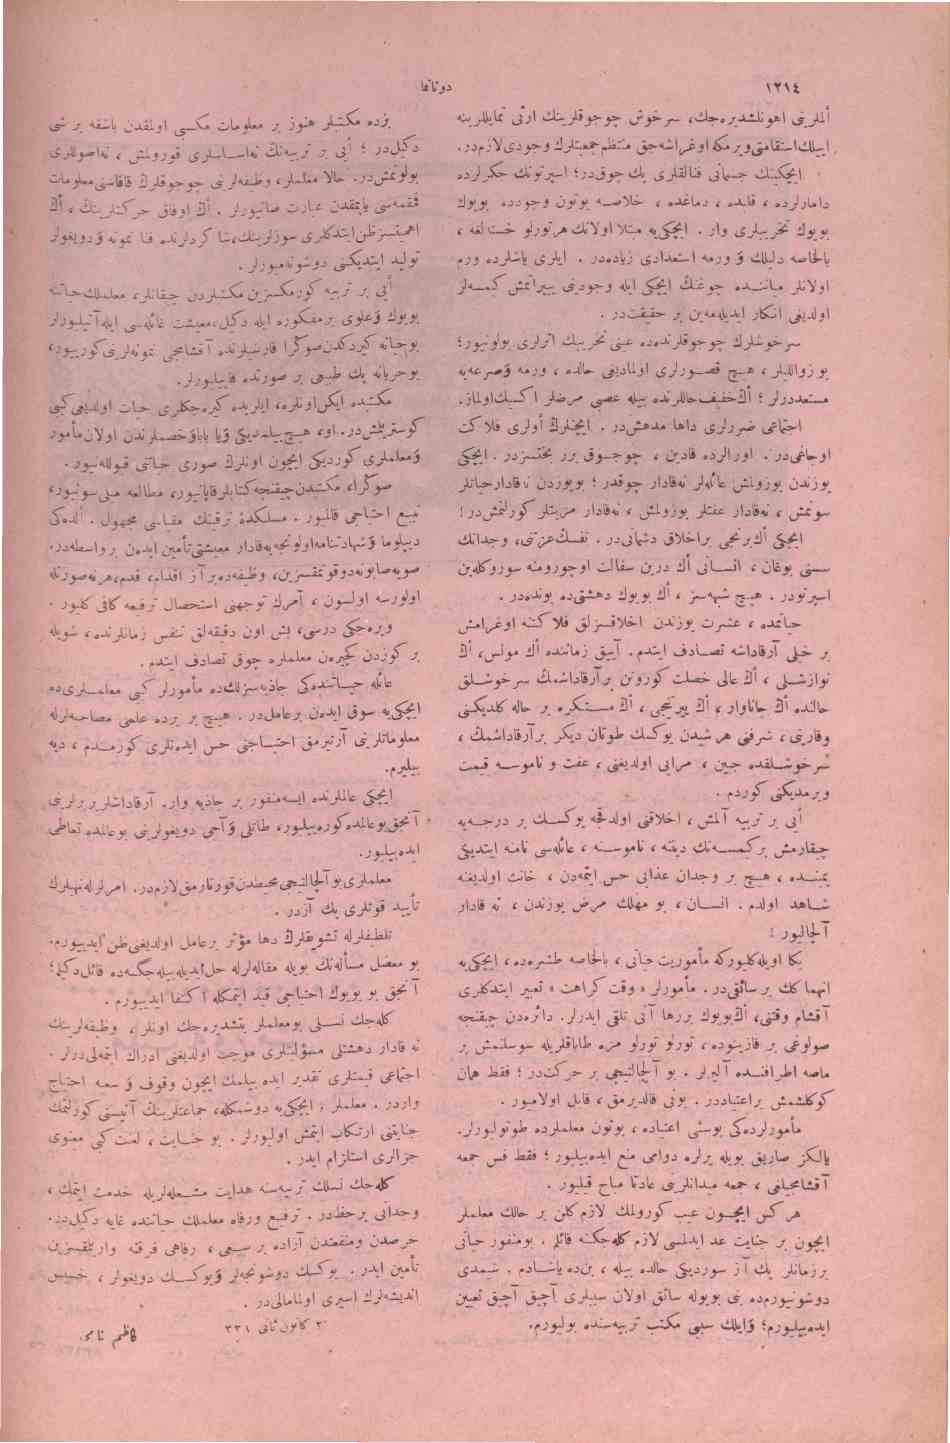 ١٢١٤
دوناتما
ألملرينى اهونلشديره‌جك، سرخوش چوجوقلرينك ارثى تمايللرينه
اييلك استقامتى ويرمكه اوغراشه‌جق منتظم جمعيتلرك وجودى لازم‌در.
ايچكينك جسمانى فنالقلرى پك چوق‌در؛ اسپرتونك جكرلرده
دامارلرده، قلبده، دماغده، خلاصه بوتون وجودده بويوك
بويوك تخريبلرى وار. ايچكى‌يه مبتلا اولانك هر تورلو خسته‌لغه،
بالخاصه دليلك و ورمه استعدادى زياده‌در. ايلرى ياشلرده ورم
اولانلر مياننده چوغنك ايچكى ايله وجودينى ييپراتمش كيمسه‌لر
اولديغى انكار ايديله‌مه‌ين بر حقيقت‌در.
سرخوشلرك چوجوقلرنده‌ده عينى تخريبك اثرلرى بولونيور؛
بو زواللیلر، هيچ قصورلرى اولماديغى حالده، ورمه و صرعه‌يه
مستعددرلر؛ أڭ خفيف حاللرنده بيله عصبى مرضلر اكسيك اولماز.
اجتماعى ضررلرى داها مدهش‌در. ايچنلرڭ أولرى فلاكت
اوجاغى‌در. اورالرده قادين، چوجوق برر بختسزدر. ايچكى
يوزندن بوزولمش عائله‌لر نه‌قادار چوقدر؛ بويوزدن نه‌قادار حياتلر
سونمش، نه‌قادار عفتلر بوزولمش، نه‌قادار مزيتلر كورلنمش‌در!
ايچكى أڭ برنجى بر اخلاق دشمانى‌در. نفسڭ عزتنى، وجدانك
سسنى بوغان، انسانى أڭ درين سفالت اوچورومنه سوروكله‌ين
اسپرتودر. هيچ شبهه‌سز، أڭ بويوك دهشتى‌ده بونده‌در.
حياتمده، عشرت يوزندن اخلاقسزلق فلاكتنه اوغرامش
بر خيلى آرقاداشه تصادف ايتدم. آييق زماننده أڭ مونس، أڭ
نوازشلى، أڭ عالى خصلت كورونن بر آرقاداشمڭ سرخوشلق
حالنده أڭ جاناوار، أڭ ييرتيجى، أڭ مستكره بر حاله كلديكنى
وقارينى، شرفنى هر شيدن يوكسك طوتان ديكر بر آرقاداشمك،
سرخوشلقده جبين، مرايى اولديغنى، عفت و ناموسه قيمت
ويرمديكنى كوردم.
أيى بر تربيه آلمش، اخلاقنى اولدقجه يوكسك بر درجه‌يه
چيقارمش بر كيمسه‌نك دينه، ناموسنه، عائله‌سى نامنه ايتديكى
يمينده، هيچ بر وجدان عذابى حس ايتمه‌دن، خائن اولديغنه
شاهد اولدم. انسان، بو مهلك مرض يوزندن، نه قادار
آلچاليور!
بكا اويله كليوركه مأموريت حياتى، بالخاصه طشره‌ده، ايچكى‌يه
انهماكك بر سائقى‌در. مأمورلر « وقت كراهت » تعبير ايتدكلرى
آقشام وقتنى، أڭ بويوك بررها آنى تلقى ايدرلر. دائره‌دن چيقنجه
صولوغى بر قازينوده، تورلو تورلو مزه طاباقلريله سوسلنمش بر
ماصه اطرافنده آليرلر. بو آلچالتيجى بر حركت‌در؛ فقط همان
كوكلشمش بر اعتياددر. بونى قالديرمق، قابل اولاميور.
مأمورلرده‌كى بوسئى اعتياده، بوتون معلملرده طوتولیورلر.
يالكز صاريق بويله يرلره دوامى منع ايده‌بيليور؛ فقط فس جمعه
آقشامجيلغى، جمعه ميدانلرينى عادتا مباح قيليور.
هر كس ايچون عيب كورولمك لازم كلن بر حالك معلملر
ايچون بر جنايت عد ايدلمسى لازم كله‌جكنه قائلم. بومنفور حياتى
بر زمانلر پك آز سورديكى حالده بيله، بن‌ده ياشادم. شيمدى
دوشونيورم‌ده بنى بويوله سائق اولان سببلرى آچيق آچيق تعيين
ايده‌بيليورم؛ و ايلك سببى مكتب تربيه‌سنده بوليورم.
بزده مكتبلر هنوز بر معلومات مكسبى اولمقدن باشقه بر شى
دكيل‌در؛ أيى بر تربيه‌نڭ نه‌اساسلرى قورولمش، نه‌اصوللرى
بولونمش‌در. حالا معلملر، وظيفه‌لرنى چوجوقلرڭ قافاسنى معلومات
قمقمه‌سى ياپمقدن عبارت صانيورلر. أڭ اوفاق حركتلرينڭ، أڭ
اهميتسز ظن ايتدكلرى سوزلرينك، شاكردلرنده فنا نمونه و دويغولر
توليد ايتديكنى دوشونه‌ميورلر.
أيى بر تربيه كورمكسزين مكتبلردن چيقانلر، معلملك حياتنه
بويوك و علوى بر مفكوره ايله دكيل، معيشت غائله‌سى ايله آتيليورلر
بوحياته كيردكدن صوكرا قارشيلرنده آقشامجى نمونه‌لرينى كورييور،
بوجريانه پك طبيعى بر صورتده قاپيليورلر.
مكتبده ايكن اونلره، ايلريده كيره‌جكلرى حيات اولديغى كبى
كوستريلمش‌در. او، هيچ بيلمديكى و يا بابا و خصملرندن اولان مأمور
و معلملرى كورديكى ايچون اونلرڭ صورى حياتنى قبوللنيور.
صوكرا، مكتبدن چيقنجه كتابلر قاپانيور، مطالعه ميلى سونيور،
تتبع احتياجى قالميور. مسلكده ترقينك مقياسى مجهول. ألده‌كى
ديپلوما و شهادتنامه اولونجه‌يه‌قادار معيشتى تأمين ايدن بر واسطه‌در.
صويه صابونه دوقونمقسزين، وظيفه‌ده بر آز اقدام، قدم، هر نه صورتله
اولورسه اولسون، آمرڭ توجهنى استحصال ترفيعه كافى كليور.
ويره‌جكى درسى، بش اون دقيقه‌لق تنفس زمانلرنده، شويله
بر كوزدن كچيرن معلملره چوق تصادف ايتدم.
عائله حياتنده‌كى جاذبه‌سزلك‌ده مأمورلر كبى معلملرى‌ده
ايچكى‌يه سوق ايدن بر عامل‌در. هيچ بر يرده علمى مصاحبه‌لرله
معلوماتلرنى آرتيرمق احتياجنى حس ايدنلرى كورمدم، ديه
بيليرم.
ايچكى عالملرنده ايسه منفور بر جاذبه وار. آرقاداشلر بربرلرينى
آنجق بو عالمده كوره‌بيليور، طاتلى و آجى دويغولرينى بو عالمده تعاطى
ايده‌بيليور.
معلملرى بو آلچالتيجى محيطدن قورتارمق لازم‌در. امرلرله نهيلرك
تأييد قوتلرى پك آزدر.
تلطيفلرله تشويقلرڭ دها مؤثر بر عامل اولديغنى ظن ايدييورم.
بو معضل مسأله‌نك بويله مقاله‌لرله حل ايديله‌بيله‌جكنه‌ده قائل دكيلم؛
آنجق بو بويوك احتياجى قيد ايتمكله اكتفا ايدييورم.
كله‌جك نسلى بومعلملر يتشديره‌جك اونلر، وظيفه‌لرينك
نه قادار دهشتلى مسؤليتلرى موجب اولديغنى ادراك ايتمه‌لى‌درلر.
اجتماعى قيمتلرى تقدير ايده بيلمك ايچون وقوف و سعيه احتياج
واردر. معلملر، ايچكى‌يه دوشمكله، جماعتلرينك آتيسنى كورلتمك
جنايتنى ارتكاب ايتمش اوليورلر. بو جنايت، لعنت كبى معنوى
جزالرى استلزام ايدر.
كله‌جك نسلك تربيه‌سنه هدايت مشعله‌لريله خدمت ايتمك،
وجدانى بر حظ‌در. ترفيع و رفاه معلملك حياتنده غايه دكيل‌در.
حرصدن ومنفعتدن آزاده بر سعى، رفاهى فرقنه وارلمقسزين
تأمين ايدر. يوكسك دوشونجه‌لر و يوكسك دويغولر، خسيس
انديشه‌لرك اسيرى اولمامالى‌در.
٢ كانون ثانى ٣٣١
كاظم نامى